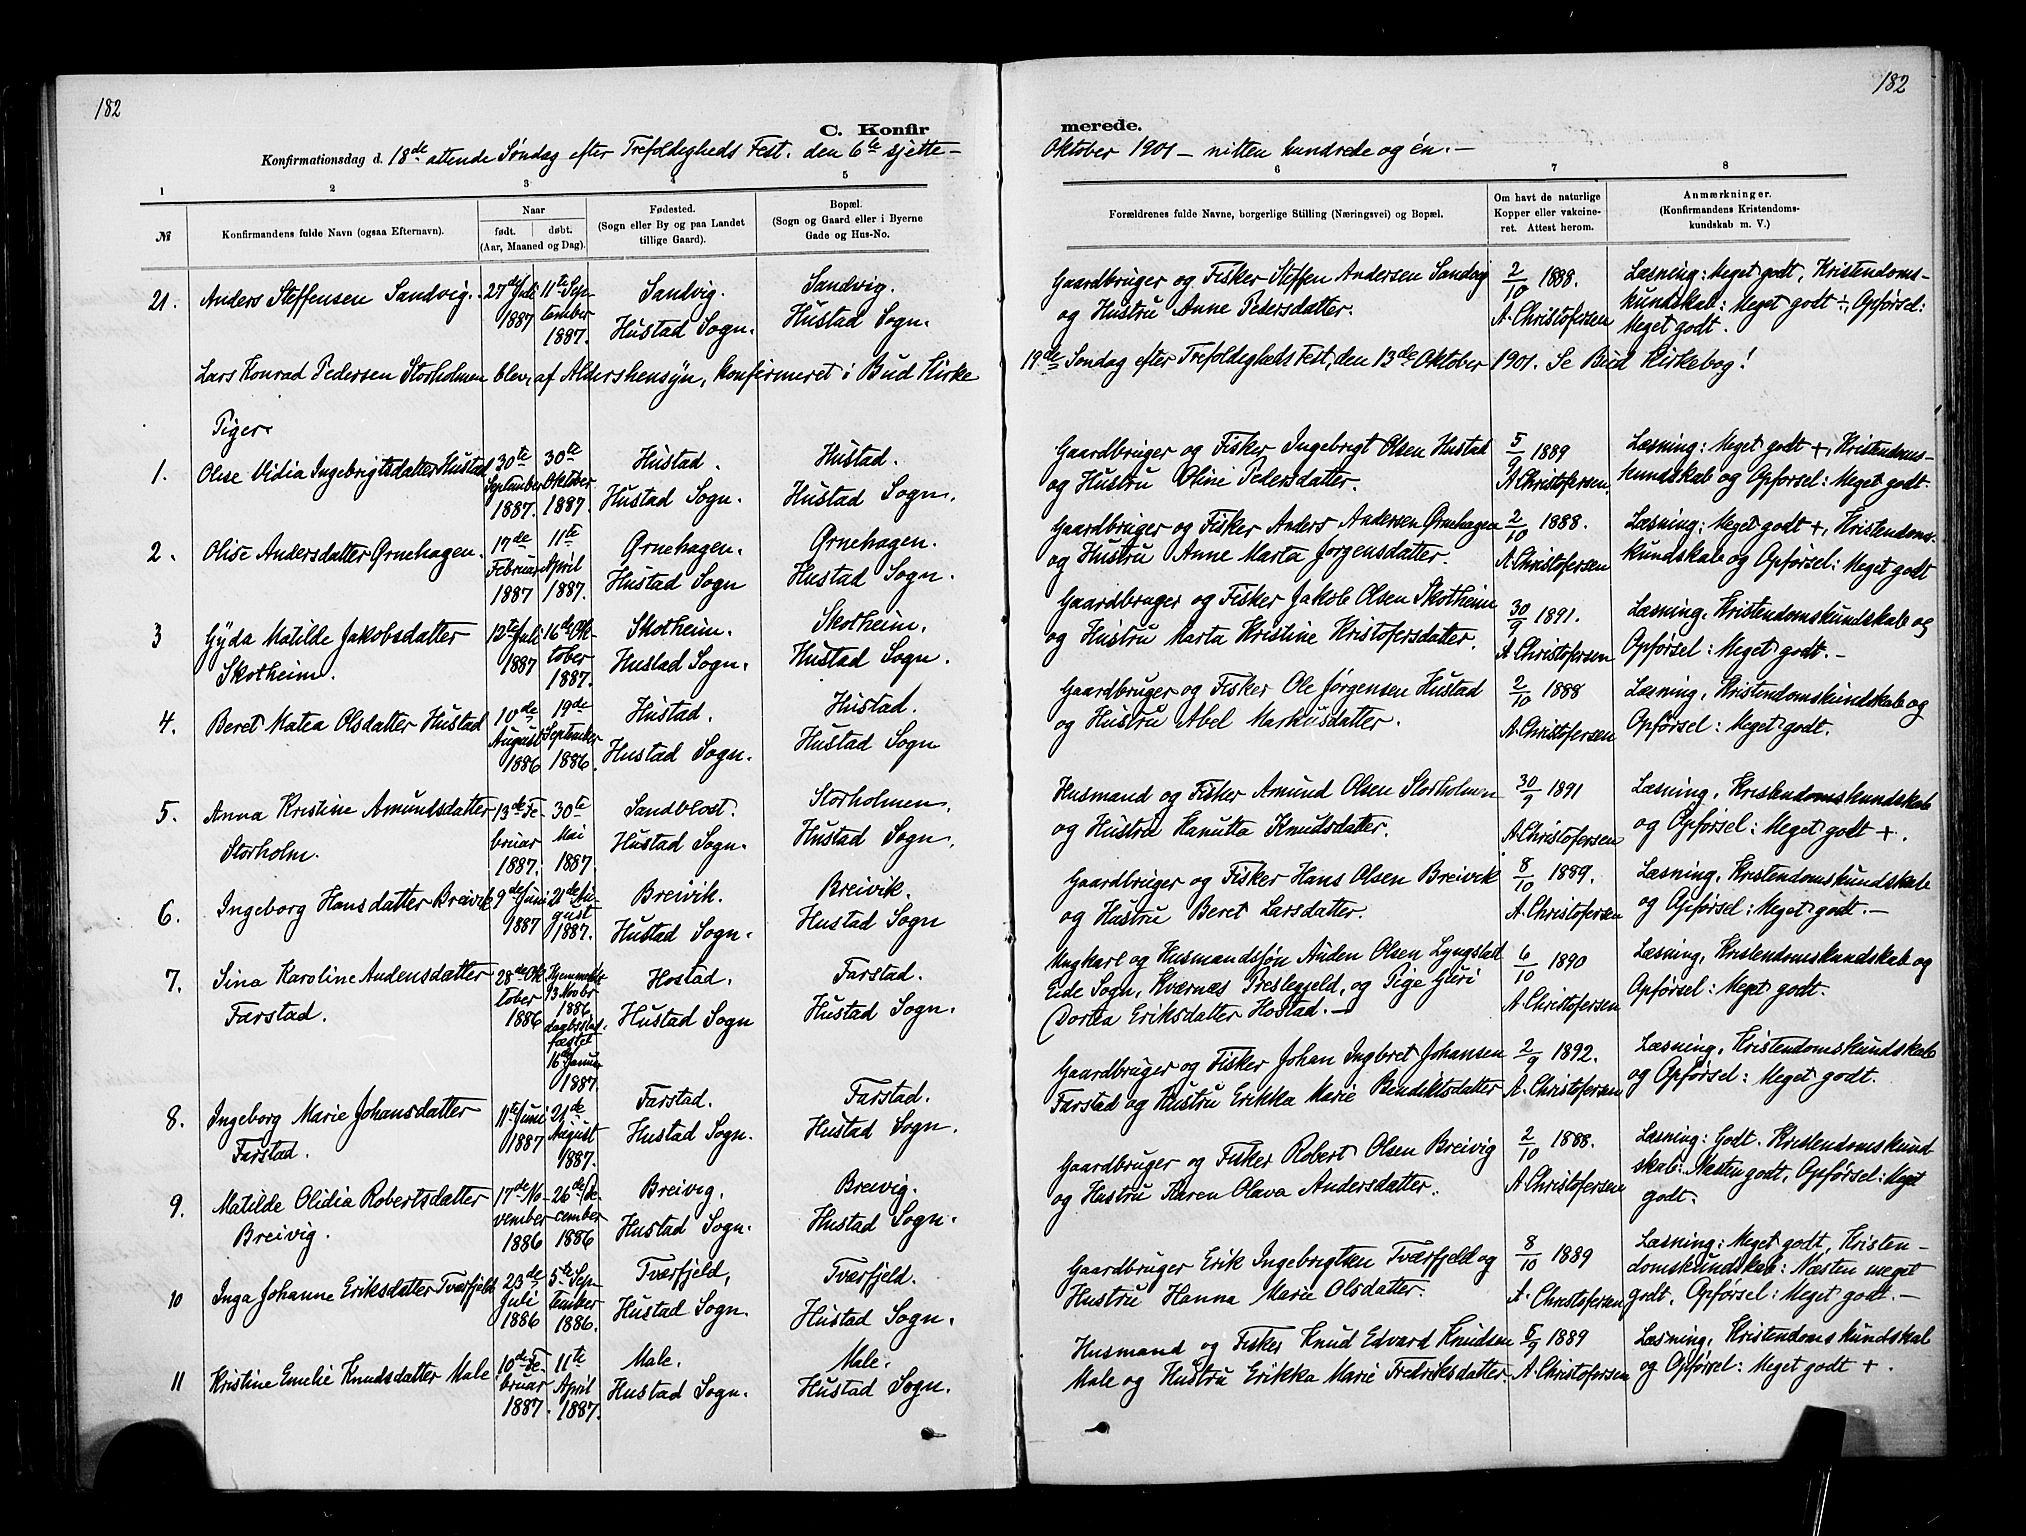 182
C. Konfir
Konfirmationsdag d. 18de attende Søndag efter Trefoldigheds Fest. den 6te sjette –
1 2 3 4 5
№ Konfirmandens fulde Navn (ogsaa Efternavn). Naar født. døbt. (Aar, Maaned og Dag). Fødested. (Sogn eller By og paa Landet tillige Gaard). Bopæl. (Sogn og Gaard eller i Byerne Gade og Hus-No.
21. Anders Steffensen Sandvig. 27de Juli 1887 11te September 1887. Sandvig. Hustad Sogn. Sandvig. Hustad Sogn.
Lars Konrad Pedersen Storholmen blev, af Aldershensyn, konfirmeret i Bud Kirke
Piger.
1. Olise Vidia Ingebrigtsdatter Hustad 30te September 1887. 30te Oktober 1887. Hustad. Hustad Sogn. Hustad. Hustad Sogn.
2. Olise Andersdatter Ørnehagen. 17de Februar 1887 11te April 1887. Ørnehagen. Hustad Sogn Ørnehagen. Hustad Sogn.
3 Gyda Matilde Jakobsdatter Skotheim. 12te Juli 1887 16de Oktober 1887. Skotheim. Hustad Sogn. Skotheim. Hustad Sogn.
4. Beret Matea Olsdatter Hustad 10de August 1886 19de September 1886. Hustad. Hustad Sogn. Hustad. Hustad Sogn
5. Anna Kristine Amundsdatter Storholm. 13de Februar 1887. 30te Mai 1887 Sandblost. Hustad Sogn. Storholmen. Hustad Sogn.
6. Ingeborg Hansdatter Breivik 9de Juni 1887 21de August 1887. Breivik. Hustad Sogn. Breivik. Hustad Sogn
7. Sina Karoline Audensdatter Farstad. 28de Oktober 1886 Hjemmedøbt 13 Novbr 1886 daabsstadfæstet 16de Januar 1887. Hostad. Hustad Sogn Farstad. Hustad Sogn.
8. Ingeborg Marie Johansdatter Farstad. 11te Juni 1887 21de August 1887. Farstad. Hustad Sogn. Farstad. Hustad Sogn.
9. Matilde Olidia Robertsdatter Breivig. 17de November 1886 26de December 1886 Breivig. Hustad Sogn. Breivig. Hustad Sogn.
10 Inga Johanne Eriksdatter Tværfjeld 23de Juli 1886 5te September 1886. Tværfjeld, Hustad Sogn. Tværfjeld. Hustad Sogn.
11 Kristine Emelie Knudsdatter Male. 10de Februar 1887. 11te April 1887. Male. Hustad Sogn. Male. Hustad Sogn.
182
merede.
Oktober 1901 – nitten hundrede og én. –
6 7 8
Forældrenes fulde Navne, borgerlige Stilling (Næringsvei) og Bopæl. Om havt de naturlige Kopper eller vakcineret. Attest herom. Anmærkninger. (Konfirmandens Kristendomskundskab m. V.)
Gaardbruger og Fisker Steffen Andersen Sandvig og Hustru Anne Pedersdatter. 2/10 1888. A. Christofersen Læsning: Meget godt, Kristendomskundskab: Meget godt ÷, Opførsel: Meget godt.
19de Søndag efter Trefoldigheds Fest, den 13de Oktober 1901. Se Bud Kirkebog!
Gaardbruger og Fisker Ingebrigt Olsen Hustad og Hustru Oline Pedersdatter. 5/9 1889 A. Christofersen. Læsning: Meget godt +, Kristendomskundskab og Opførsel: Meget godt.
Gaardbruger og Fisker Anders Andersen Ørnehagen og Hustru Anne Marta Jørgensdatter. 2/10 1888. A. Christofersen Læsning: Meget godt +, Kristendomskundskab og Opførsel: Meget godt
Gaardbruger og Fisker Jakob Olsen Skotheim og Hustru Marta Kristine Kristofersdatter. 30/9 1891. A. Christofersen Læsning, Kristendomskundskab og Opførsel: Meget godt. –
Gaardbruger og Fisker Ole Jørgensen Hustad og Hustru Abel Markusdatter. 2/10 1888 A. Christofersen Læsning, Kristendomskundskab og Opførsel: Meget godt.
Husmand og Fisker Amund Olsen Storholmn og Hustru Hanutta Knutsdatter. 30/9 1891 A. Christofersen Læsning, Kristendomskundskab og Opførsel: Meget godt +.
Gaardbruger og Fisker Hans Olsen Breivik og Hustru Beret Larsdatter. 8/10 1889. A. Christofersen Læsning, Kristendomskundskab og Opførsel: Meget godt. –
Ungkarl og Husmandsøn Auden Olsen Lyngstad Eide Sogn, Kværnæs Prestegjeld, og Pige Guri Dortea Eriksdatter Hostad. – 6/10 1890 A. Christofersen Læsning, Kristendomskundskab og Opførsel: Meget godt.
Gaardbruger og Fisker Johan Ingbret Johansen Farstad og Hustru Erikka Marie Bendiktsdatter 2/9 1892. A. Christofersen Læsning, Kristendomskundskab og Opførsel: Meget godt.
Gaardbruger og Fisker Robert Olsen Breivig og Hustru Karen Olava Andersdatter. 2/10 1888. A. Christofersen Læsning: Godt. Kristendomskundskab: Næsten godt, Opførsel: Meget godt.
Gaardbruger Erik Ingebrigtsen Tværfjeld og Hustru Hanna Marie Olsdatter. 8/10 1889 A. Christofersen Læsning: Meget godt, Kristendomskundskab: Næsten meget godt, Opførsel: Meget godt. –
Husmand og Fisker Knud Edvard Knudsen Male og Hustru Erikka Marie Fredriksdatter. 5/9 1889 A. Christofersen Læsning, Kristendomskundskab og Opførsel: Meget godt +.